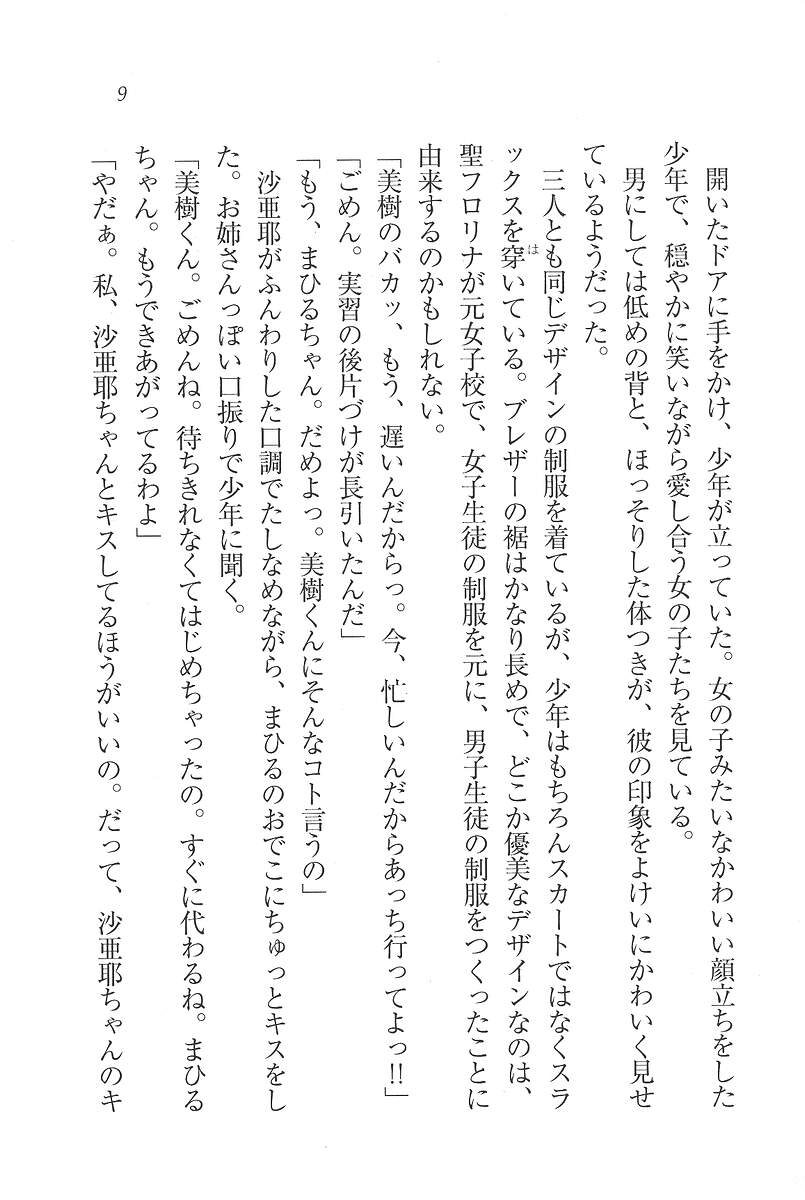 9
開いたドアに手をかけ、少年が立っていた。女の子みたいなかわいい顔立ちをした
少年で、穏やかに笑いながら愛し合う女の子たちを見ている。
男にしては低めの背と、ほっそりした体つきが、彼の印象をよけいにかわいく見せ
ているようだった。
三人とも同じデザインの制服を着ているが、少年はもちろんスカートではなくスラ
ックスを穿はいている。ブレザーの裾はかなり長めで、どこか優美なデザインなのは、
聖フロリナが元女子校で、女子生徒の制服を元に、男子生徒の制服をつくったことに
由来するのかもしれない。
「美樹のバカッ、もう、遅いんだからっ。今、忙しいんだからあっち行ってよっ!!」
「ごめん。実習の後片づけが長引いたんだ」
「もう、まひるちゃん。だめよっ。美樹くんにそんなコト言うの」
沙亜耶がふんわりした口調でたしなめながら、まひるのおでこにちゅっとキスをし
た。お姉さんっぽい口振りで少年に聞く。
「美樹くん。ごめんね。待ちきれなくてはじめちゃったの。すぐに代わるね。まひる
ちゃん。もうできあがってるわよ」
「やだぁ。私、沙亜耶ちゃんとキスしてるほうがいいの。だって、沙亜耶ちゃんのキ